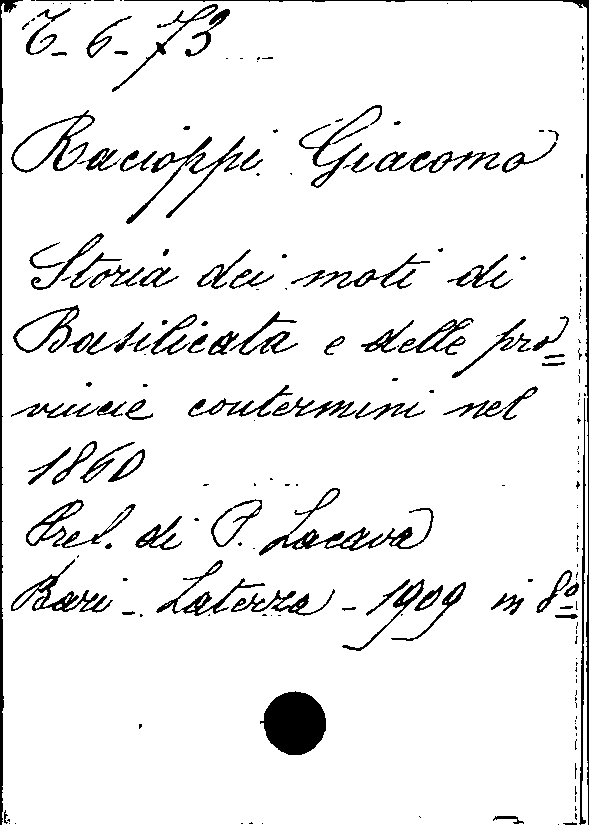 6-6-73
Racioppi Giacomo
Storia dei moti di
Basilicata e delle pro=
vincie contermini nel
1860
Pref. di P. Lacava
Bari - Laterza - 1909 in 8º